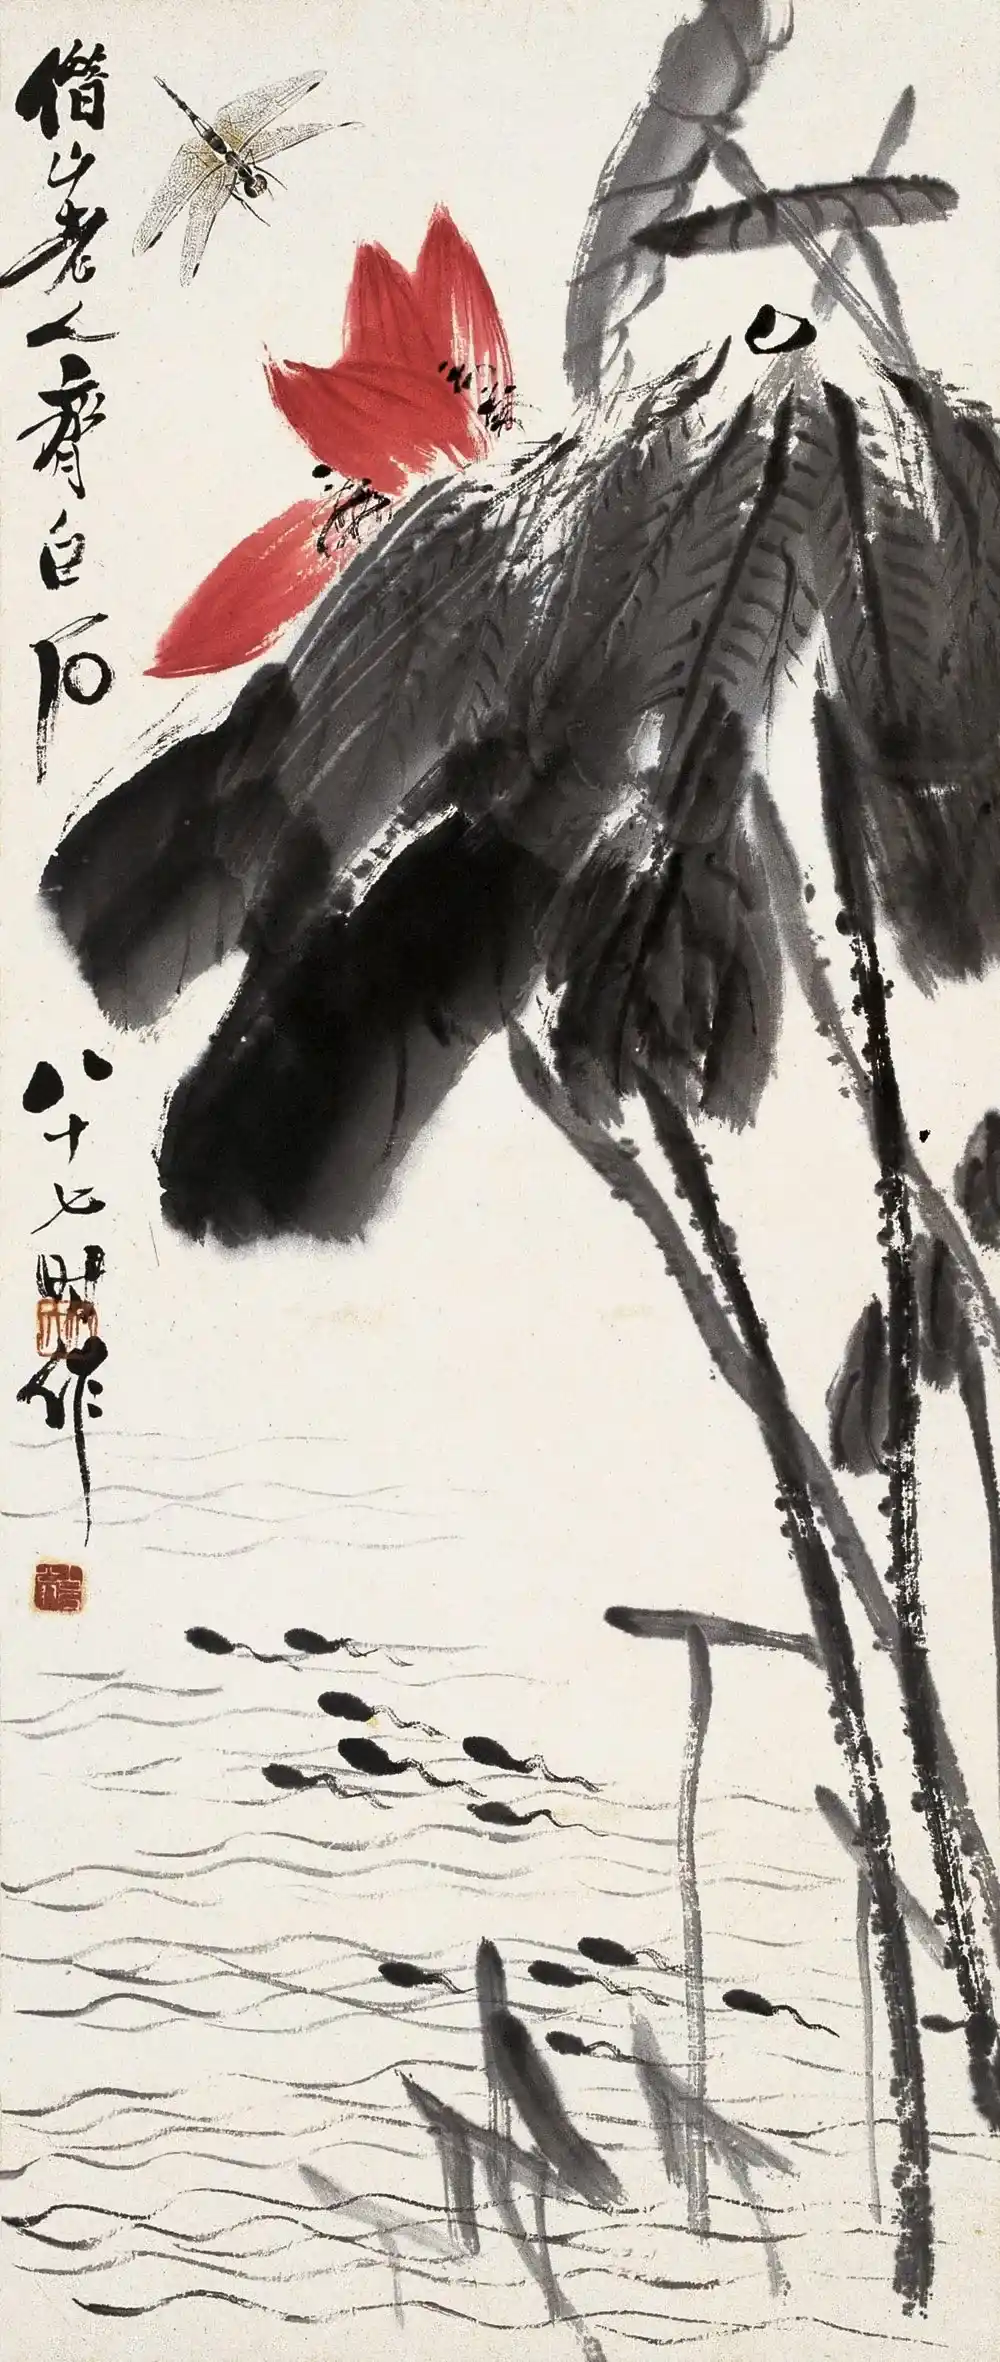 借山老人齊白石八十七时作